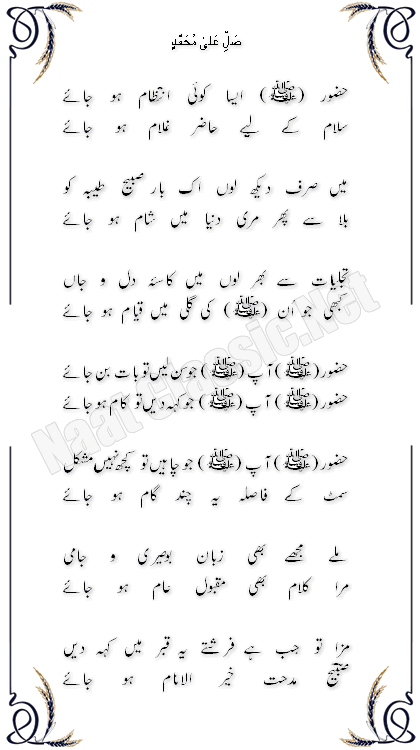 صَلِّ عَلیٰ مُحَمَّدٍ
حضور (ﷺ) ایسا کوئی انتظام ہو جائے
سلام کے لیے حاضر غلام ہو جائے
میں صرف دیکھ لوں اک بار صبیحِ طیبہ کو
بلا سے پھر مری دنیا میں شام ہو جائے
تجلیات سے بھر لوں میں کاسئہ دل و جاں
کبھی جو اُن (ﷺ) کی گلی میں قیام ہو جائے
حضور (ﷺ) آپ (ﷺ) جو سن لیں تو بات بن جائے
حضور (ﷺ) آپ (ﷺ) جو کہہ دیں تو کام ہو جائے
حضور (ﷺ) آپ (ﷺ) جو چاہیں تو کچھ نہیں مشکل
سمٹ کے فاصلہ یہ چند گام ہو جائے
ملے مجھے بھی زبانِ بوصیری و جامی
مرا کلام بھی مقبولِ عام ہو جائے
مزا تو جب ہے فرشتے یہ قبر میں کہہ دیں
صبیح مدحتِ خیر الانام ہو جائے
Naat Classic.Net